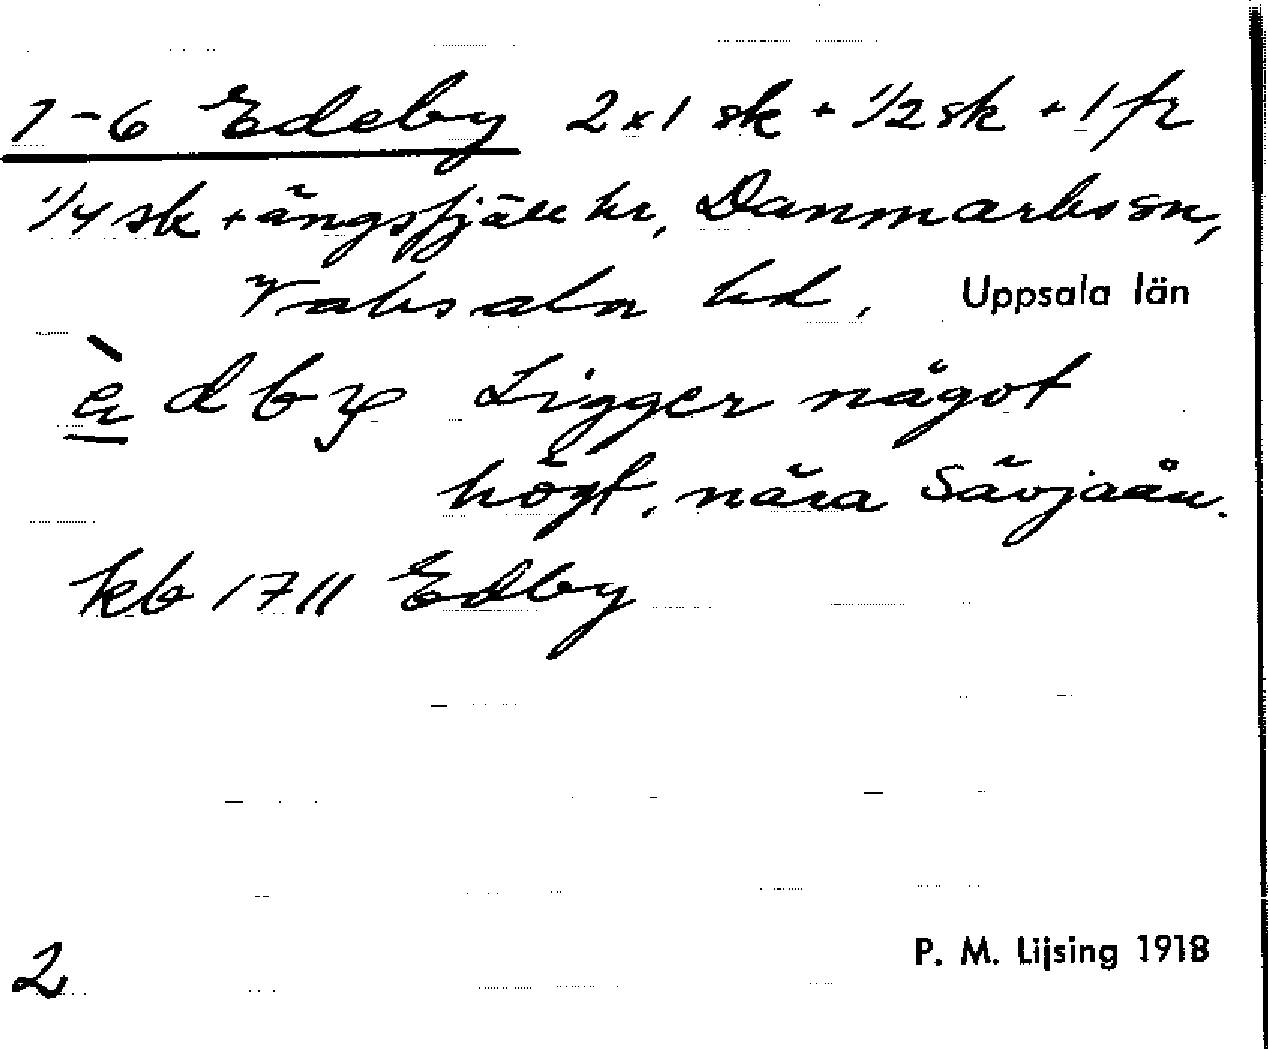 1-6 Edeby 2x1 sk + 1/2 sk + 1 fr
1/4 sk + ängsfjäll hr, Danmarks sn,
Vaksala hd. Uppsala län
è d b y Ligger något
högt, nära Sävjaån.
kb 1711 Edby
2 P. M. Lijsing 1918